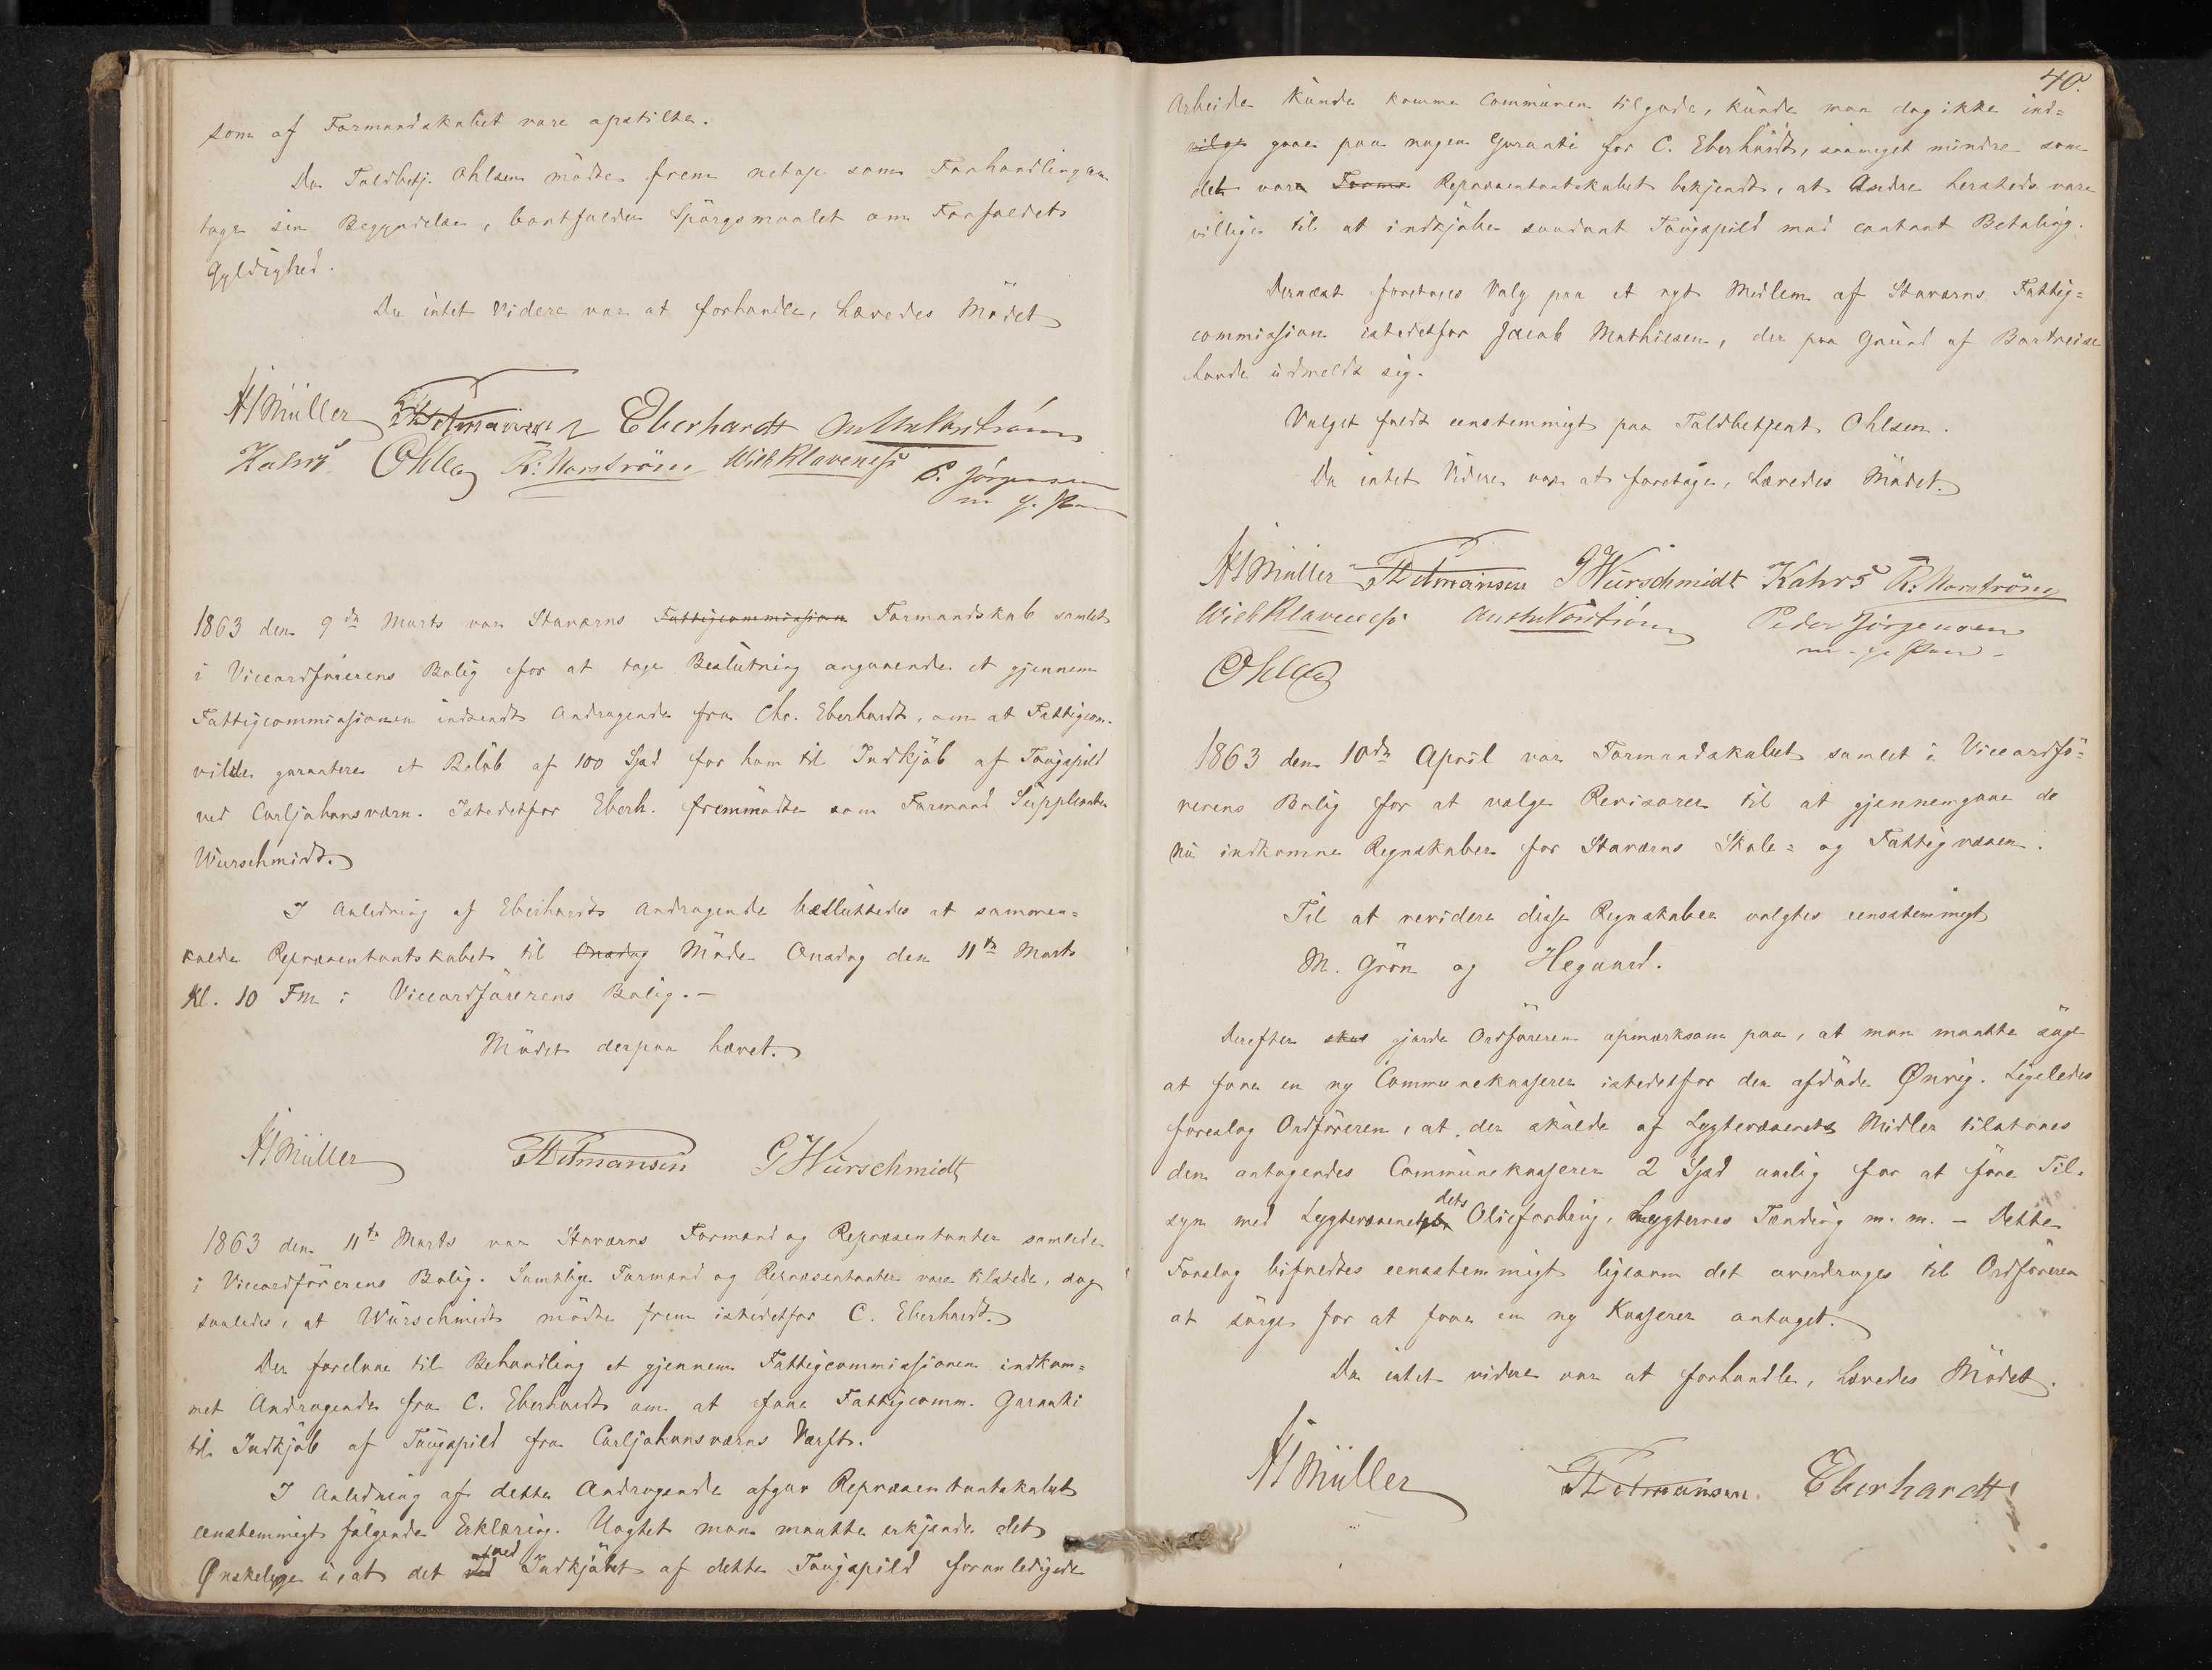 som af Formandskabet vare opstilte.
Da Toldbetj. Ohlsen mödte frem netop som Forhandlingen
tog sin Begyndelse, bortfalder Spörgsmaalet om Forfaldets
Gyldighed.
Da intet Videre var at forhandle, hævedes Mödet
Müller Eberhardt
Kahrs Ohlsen R: Norström Wilh Klaveness P. Jörgensen
m. p. Pen
1863 den 9de Marts var Staværns Fattigcommission Formandskab samlet
i Viceordförerens Bolig for at tage Beslutning angaaende et gjennem
Fattigcommissionen indsendt Andragende fra Chr. Eberhardt, om at Fattigcom.
vilde garantere et Belöb af 100 Spd for ham til Indkjöb af Tougspild
ved Carljohansværn. Istedetfor Eberh. fremmödte som Formand Suppleanten
Würschmidt.
I Anledning af Eberhardts Andragende besluttedes at sammen=
kalde Repræsentantskabet til Onsdag Möde Onsdag den 11te Marts
Kl. 10 Fm i Viceordförerens Bolig. –
Mödet derpaa hævet.
Müller GWürschmidt
1863 den 11te Marts var Staværns Formænd og Repræsentanter samlede
i Viceordförerens Bolig. Samtlige Formænd og Repræsentanter vare tilstede, dog
saaledes, at Würschmidt mödte frem istedetfor C. Eberhardt.
Der forelaae til Behandling et gjennem Fattigcommissionen indkom=
met Andragende fra C. Eberhardt om at faae Fattigcomm. Garanti
til Indkjöb af Tougspild fra Carljohansværns Værft.
I Anledning af dette Andragende afgav Repræsentantskabet
eenstemmigt fölgende Erklæring. Uagtet man maatte erkjende det
Ønskelige i, at det ved af ved Indkjöbet af dette Tougspild foranledigede
40.
Arbeide kunde komme Communen tilgode, kunde man dog ikke ind=
vilge gaae paa nogen Garanti for C. Eberhardt, saameget mindre som
det vare Forma Repræsentantskabet bekjendt, at Andre hersteds vare
villige til at indkjöbe saadant Tougspild mod contant Betaling.
Dernæst foretoges Valg paa et nyt Medlem af Staværns Fattig=
commission istedetfor Jacob Mathiesen, der paa Grund af Bortreise
havde udmeldt sig.
Valget faldt eenstemmigt paa Toldbetjent Ohlsen.
Da intet Videre var at foretage, hævedes Mödet.
Müller GWürschmidt Kahrs R: Norström
Wilh Klaveness Peder Jörgensen
m. p. Pen
Ohlsen
1863 den 10de April var Formandskabet samlet i Viceordfö=
rerens Bolig for at vælge Revisorer til at gjennemgaae de
nu indkomne Regnskaber for Staværns Skole= og Fattigvæsen.
Til at revidere disse Regnskaber valgtes eenstemmigt
M. Grön og Hegaard.
Derefter skul gjorde Ordföreren opmærksom paa, at man maatte söge
at faae en ny Communekasserer istedetfor den afdöde Ønvig. Ligeledes
foreslog Ordföreren, at der skulde af Lygtevæsenets Midler tilstaaes
den antagendes Communekasserer 2 Spd aarlig for at före Til=
syn med Lygtevæsenets dets Olieforbrug, Lygternes Tænding m. m. – Dette
Forslag bifaldtes eenstemmigt ligesom det overdroges til Ordföreren
at sörge for at faae en ny Kasserer antaget.
Da intet videre var at forhandle, hævedes Mödet.
Müller Eberhardt